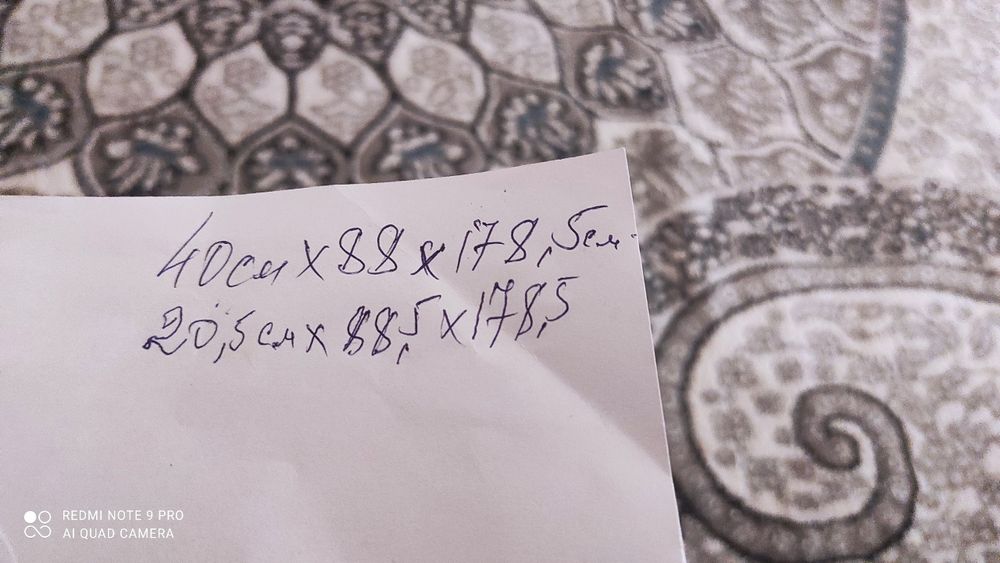 40см x 88 x 178,5см.
20,5см x 88,5 x 178,5
REDMI NOTE 9 PRO
AI QUAD CAMERA